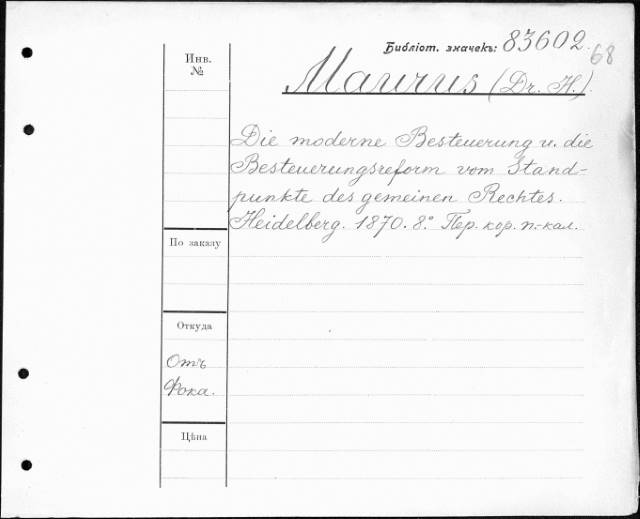 Библіот. значекъ: 83602.
68
Инв.
№
Maurus (Dr. H.).
Die moderne Besteuerung u. die
Besteuerungsreform vom Stand-
punkte des gemeinen Rechtes.
Heidelberg. 1870. 8.° Пер. кор. п.-кал.
По заказу
Откуда
Отъ
Фока.
Цѣна